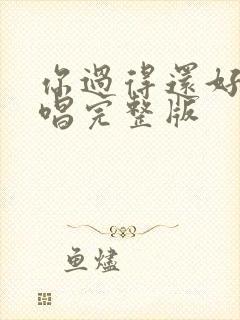 你過得還好
唱完整版
鱼燼